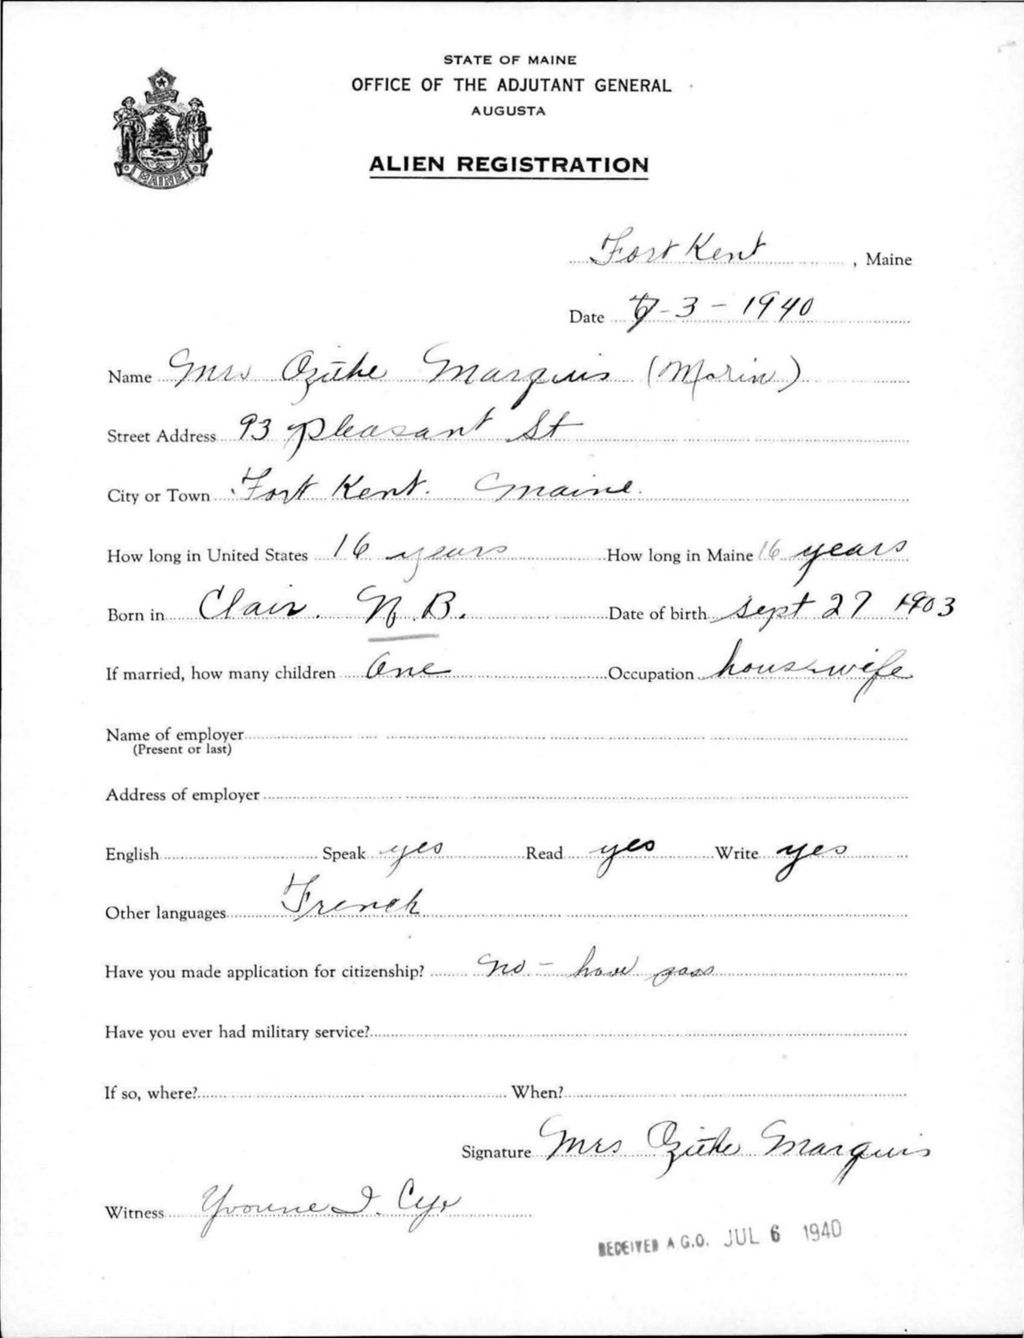 STATE OF MAINE
OFFICE OF THE ADJUTANT GENERAL
AUGUSTA
MAINE
ALIEN REGISTRATION
Fort Kent, Maine
Date 7-3-1940
Name Mrs Ozithe Marquis (Morin)
Street Address 93 Pleasant St
City or Town Fort Kent. Maine.
How long in United States 16 years How long in Maine 16 years
Born in Clair. N.B. Date of birth Sept 27 1903
If married, how many children One Occupation housewife
Name of employer
(Present or last)
Address of employer
English Speak yes Read yes Write yes
Other languages French
Have you made application for citizenship? No - have pass
Have you ever had military service?
If so, where? When?
Signature Mrs Ozithe Marquis
Witness Yvonne I. Cyr
RECEIVED A.G.O. JUL 6 1940